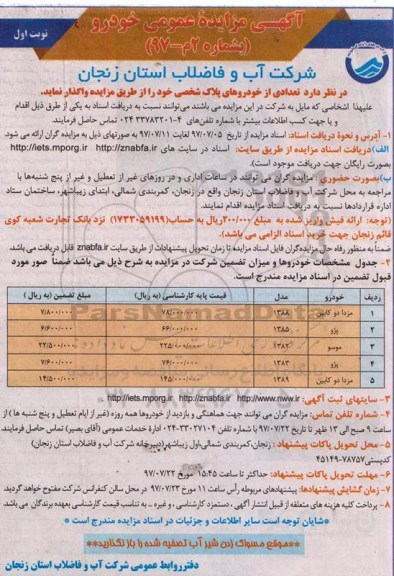 آگهی مزایدهٔ عمومی خودرو
نوبت اول
(بشماره ۲م-۹۷)
شرکت آب و فاضلاب استان زنجان
در نظر دارد تعدادی از خودروهای پلاک شخصی خود را از طریق مزایده واگذار نماید.
علیهذا اشخاصی که مایل به شرکت در این مزایده می باشند می‌توانند نسبت به دریافت اسناد به یکی از طرق ذیل اقدام
و یا جهت کسب اطلاعات بیشتر با شماره تلفن‌های ۴-۳۳۷۸۳۲۰۱ ۰۲۴ تماس حاصل فرمایند.
۱- آدرس و نحوهٔ دریافت اسناد: اسناد مزایده از تاریخ ۹۷/۰۷/۰۵ لغایت ۹۷/۰۷/۱۱ به صورتهای ذیل به مزایده گران ارائه می شود.
الف) دریافت اسناد مزایده از طریق سایت: اسناد در سایت های http://iets.mporg.ir http://znabfa.ir
بصورت رایگان جهت دریافت موجود است.
ب) بصورت حضوری: مزایده گران می توانند در ساعات اداری و در روزهای غیر از تعطیل و غیر از پنج شنبه‌ها با
مراجعه به محل شرکت آب و فاضلاب استان زنجان واقع در زنجان، کمربندی شمالی، ابتدای زیباشهر، ساختمان ستاد
اداره قراردادها نسبت به دریافت اسناد مزایده اقدام نمایند.
(توجه: ارائه فیش واریز شده به مبلغ ۲۰۰/۰۰۰ریال به حساب(۱۷۳۳۰۵۹۱۹۹) نزد بانک تجارت شعبه کوی
قائم زنجان جهت خرید اسناد الزامی است)
ضمناً به منظور رفاه حال مزایده‌گران فایل اسناد مزایده تا زمان تحویل پیشنهادات از طریق سایت znabfa.ir قابل دریافت می باشد.
۲- جدول مشخصات خودروها و میزان تضمین شرکت در مزایده به شرح ذیل می باشد ضمناً صور مورد
قبول تضمین در اسناد مزایده مندرج است.
ردیف خودرو مدل قیمت پایه کارشناسی (به ریال) مبلغ تضمین (به ریال)
۱ مزدا دو کابین ۱۳۸۸ ۷۸/۰۰۰/۰۰۰ ۷/۸۰۰/۰۰۰
۲ پژو ۱۳۸۵ ۶۶/۰۰۰/۰۰۰ ۶/۶۰۰/۰۰۰
۳ موسو ۱۳۸۲ ۲۲۵/۰۰۰/۰۰۰ ۲۲/۵۰۰/۰۰۰
۴ پژو ۱۳۸۳ ۷۶/۰۰۰/۰۰۰ ۷/۶۰۰/۰۰۰
۵ مزدا دو کابین ۱۳۸۹ ۱۴۵/۰۰۰/۰۰۰ ۱۴/۵۰۰/۰۰۰
۳- سایتهای ثبت آگهی: http://iets.mporg.ir http://znabfa.ir http://www.nww.ir
۴- شماره تلفن تماس: مزایده گران می توانند جهت هماهنگی و بازدید از خودروها همه روزه (غیر از ایام تعطیل و پنج شنبه ها) از
ساعت ۹ صبح الی ۱۳ ظهر تا تاریخ ۹۷/۰۷/۲۲ با شماره تلفن ۳۳۰۲۷۱۰۴-۰۲۴ ادارهٔ خدمات عمومی (آقای بصیر) تماس حاصل فرمایند.
۵- محل تحویل پاکات پیشنهاد: زنجان،کمربندی شمالی،اول زیباشهر(دبیرخانه شرکت آب و فاضلاب استان زنجان)
کدپستی۷۸۷۵۷-۴۵۱۴۹
۶- مهلت تحویل پاکات پیشنهاد: حداکثر تا ساعت ۱۵:۴۵ مورخ ۹۷/۰۷/۲۲
۷- زمان گشایش پیشنهادها: پیشنهادهای مربوطه رأس ساعت ۱۱ مورخ ۹۷/۰۷/۲۳ در محل سالن کنفرانس شرکت مفتوح خواهد گردید.
۸- پرداخت کلیه هزینه های متعلقه از قبیل انتشار آگهی ، دستمزد کارشناسی ، و غیره .. به تناسب قیمت کارشناسی بعهده برندگان می باشد.
*شایان توجه است سایر اطلاعات و جزئیات در اسناد مزایده مندرج است*
**موقع مسواک زدن شیر آب تصفیه شده را باز نگذارید**
دفتر روابط عمومی شرکت آب و فاضلاب استان زنجان